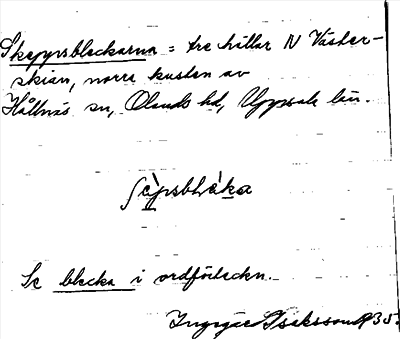 Skeppsbleckarna = tre hällar N Väster-
skian, norra kusten av
Hållnäs sn, Olands hd, Uppsala län.
ʃèpsblɛ̀ka
Se blecka i ordförteckn.
Isaksson 1935.